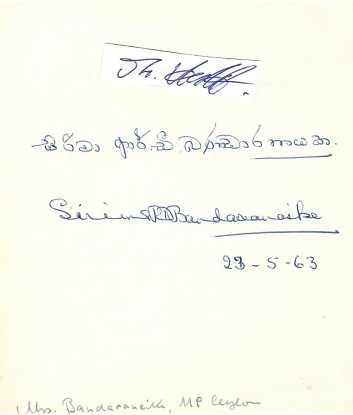 Th. Heuss.
සිරිමා ආර්. ඩී. බණ්ඩාරනායක.
Sirima R.D. Bandaranaike
23-5-63
Mrs. Bandaraneike, MP Ceylon